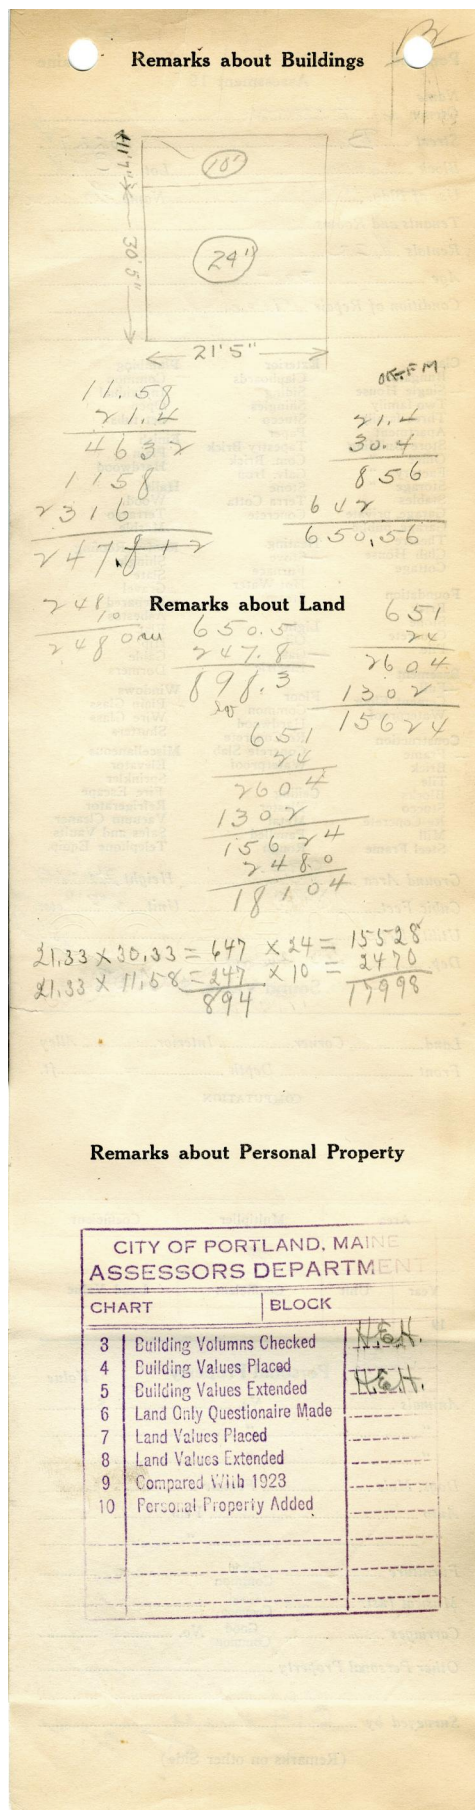 Remarks about Buildings
10'
11'7"
30'5"
24"
21'5"
OK-FM
11.58
21.4
4632
1158
2316
247.812
21.4
30.4
856
642
650.56
248
10
2480
Remarks about Land
650.5
247.8
898.3
651
24
2604
1302
15624
651
24
2604
1302
15624
2480
18104
21.33 x 30.33 = 647 x 24 = 15528
21.33 x 11.58 = 247 x 10 = 2470
894 17998
Remarks about Personal Property
CITY OF PORTLAND, MAINE
ASSESSORS DEPARTMENT
CHART BLOCK
3 Building Volumns Checked H.E.H.
4 Building Values Placed
5 Building Values Extended H.E.H.
6 Land Only Questionaire Made
7 Land Values Placed
8 Land Values Extended
9 Compared With 1923
10 Personal Property Added